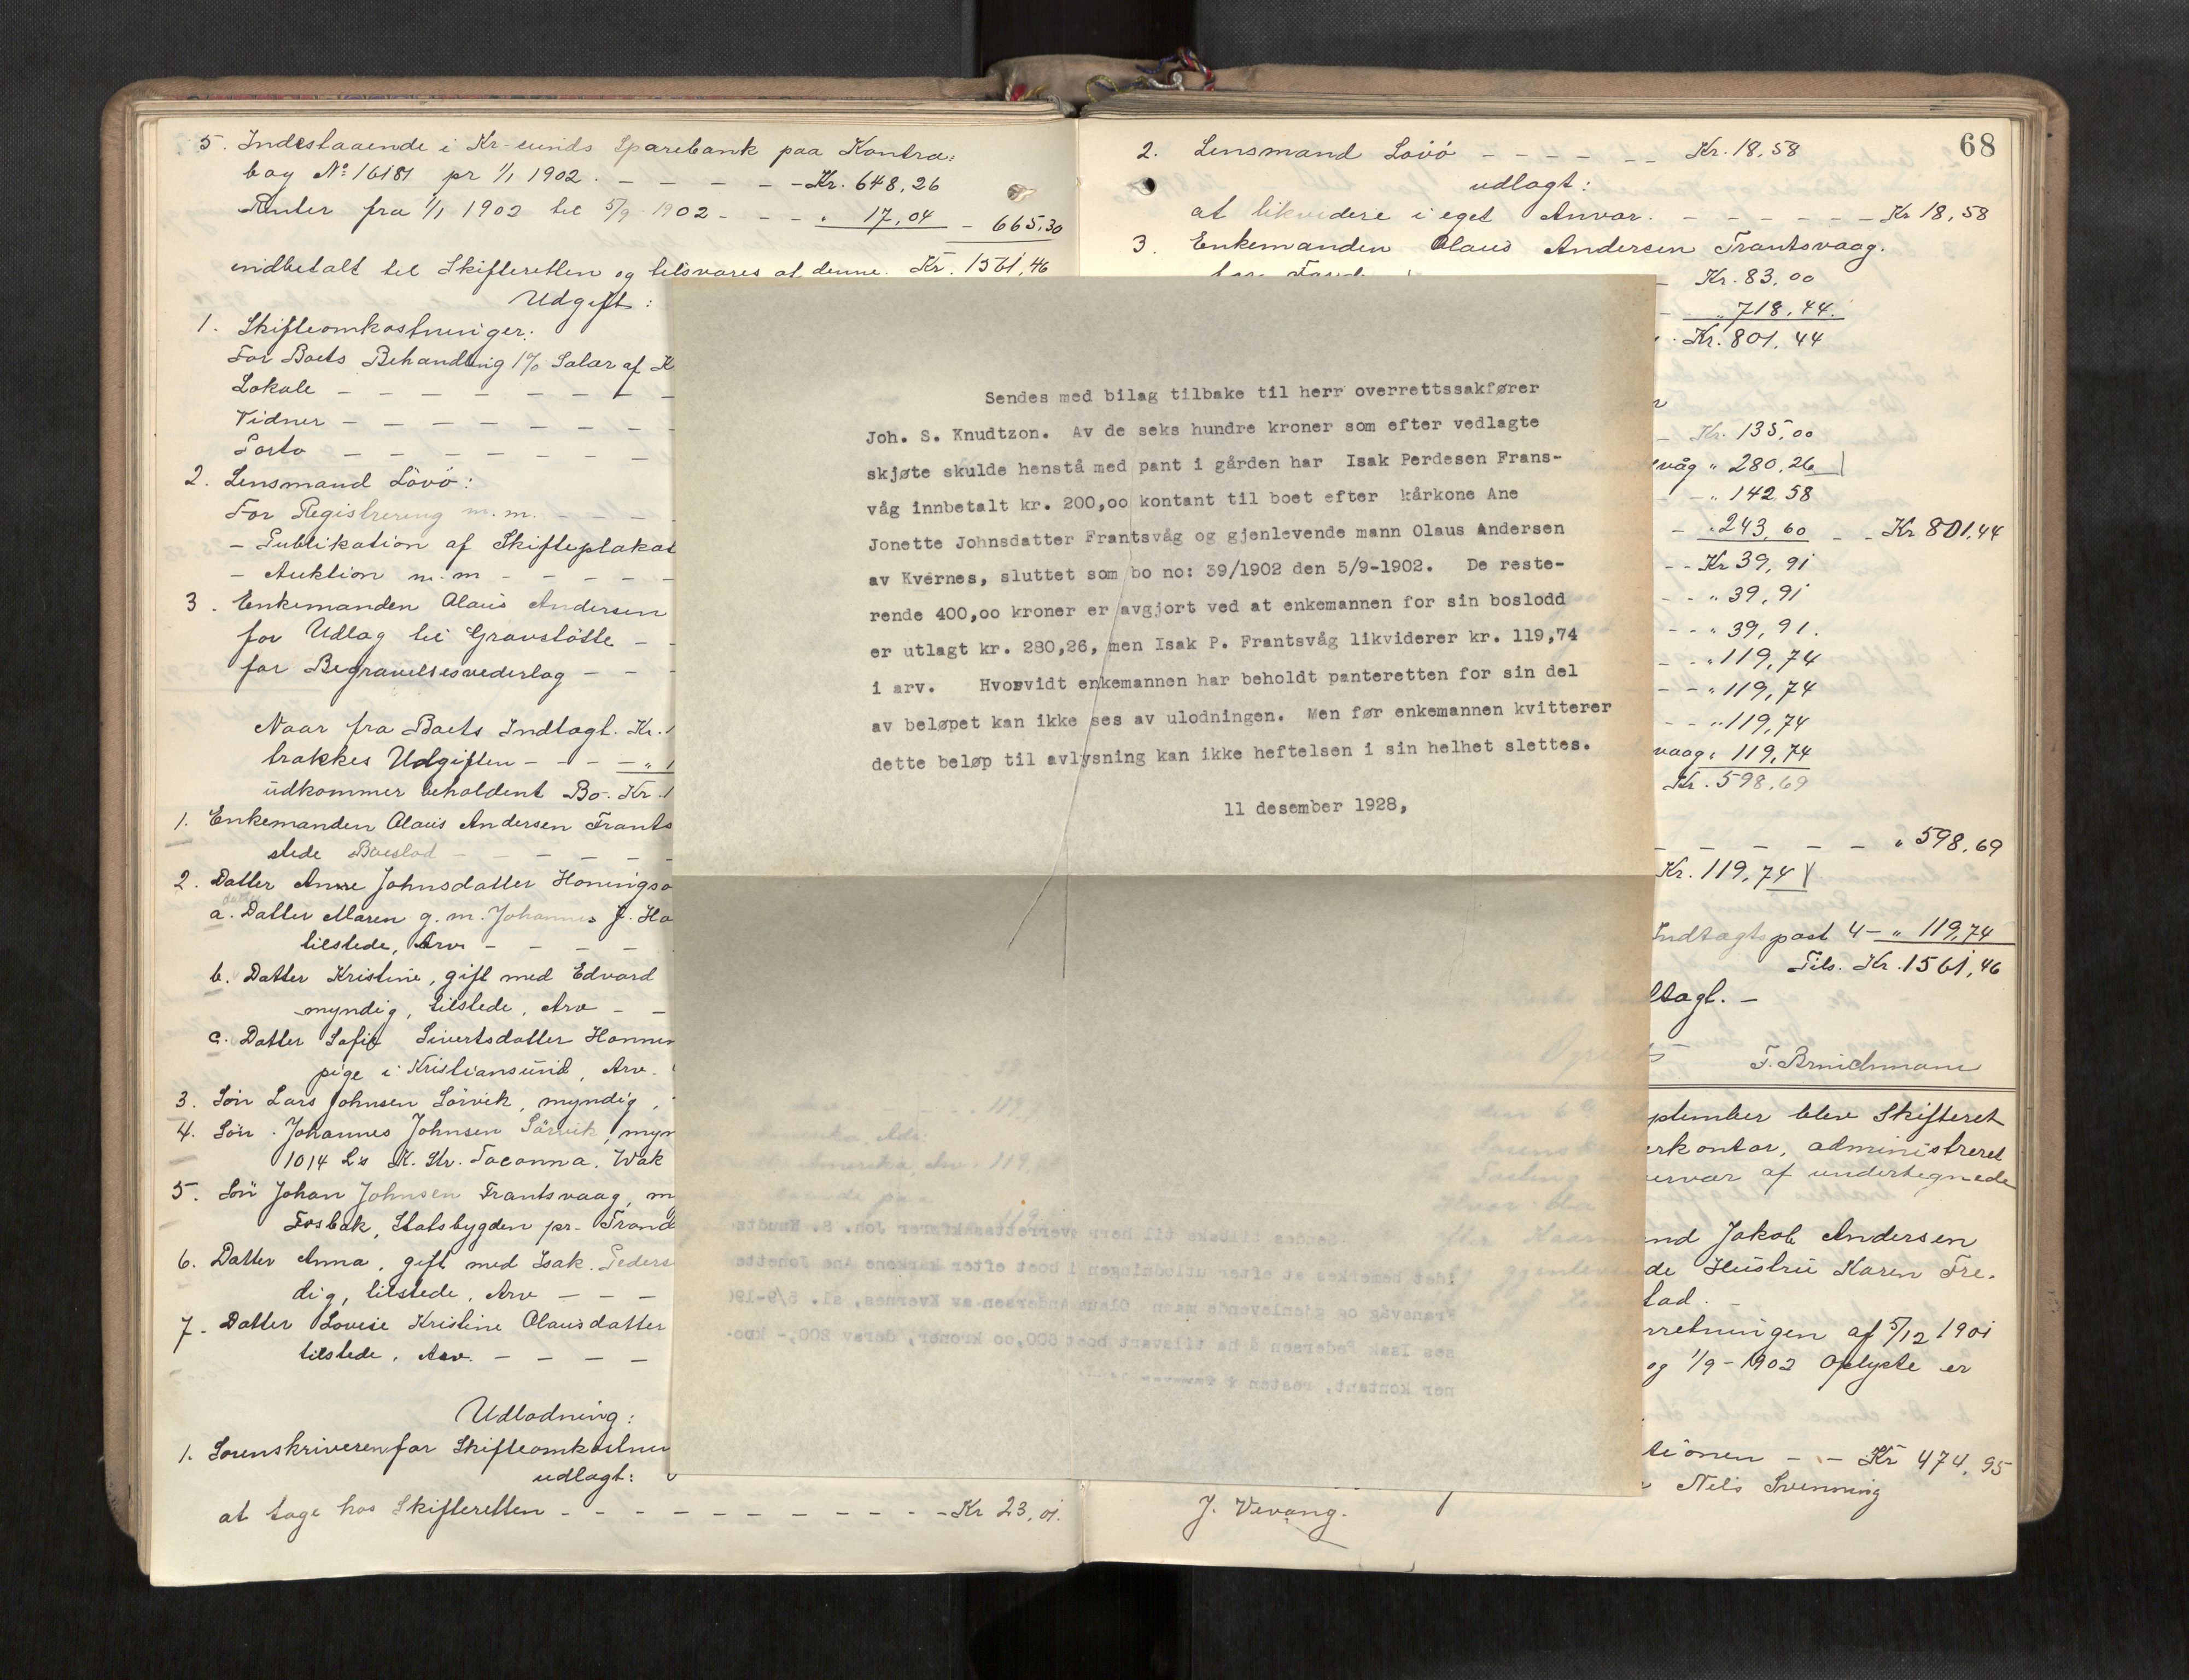 5. Indestaaende i Kr-sunds Sparebank paa Kontra-
bog No 16181 pr 1/1 1902. - - - - - Kr. 648,26
Renter fra 1/1 1902 til 5/9 1902 - - - " 17,04 - 665,30
indbetalt til Skifteretten og tilsvares af denne. Kr. 1561,46
Udgift:
1. Skifteomkostninger:
For Boets Behandling 1% Salær af K
Lokale - - - - - - - -
Vidner - - - - - - - -
Porto - - - - - - - -
2. Lensmand Lövö:
For Registrering m.m. - - -
- Publikation af Skifteplakat
- Auktion m.m - - - - -
3. Enkemanden Olaus Andersen
for Udlag til Gravstötte - -
for Begravelsesvederlag - - -
Naar fra Boets Indtægt. Kr. 1
trækkes Udgiften - - - - " 1
udkommer beholdent Bo. Kr. 1
1. Enkemanden Olaus Andersen Frants
stede Boeslod - - - - - -
2. Datter Anne Johnsdatter Honingsø
a. Datter Maren g. m. Johannes J. Ho
tilstede, Arv - - - - -
b. Datter Kristine, gift med Edvard
myndig, tilstede, Arv - -
c. Datter Sofie Sivertsdatter Honnin
pige i Kristiansund, Arv.
3. Sön Lars Johnsen Sörvik, myndig,
4. Sön Johannes Johnsen Sörvik, myn
1014 L's K. Str. Tacomna. Wak
5. Sön Johan Johnsen Frantsvaag, m
Fosbæk, Statsbygden pr. Trond
6. Datter Anna, gift med Isak Peders
dig, tilstede, Arv - - -
7. Datter Lovise Kristine Olausdatter
tilstede, Arv. - - - -
Udlodning:
1. Sorenskriveren for Skifteomkostnin
udlagt:
at tage hos Skifteretten - - - - - - - - - - Kr 23,01.
68
2. Lensmand Lövö - - - - - - Kr. 18,58
udlagt:
at likvidere i eget Ansvar. - - - - - - Kr 18,58
3. Enkemanden Olaus Andersen Frantsvaag.
- Kr. 83,00
- " 718,44.
Kr. 801,44
- Kr. 135,00
våg " 280,26
- " 142,58
- " 243,60 - - Kr 801,44
- - Kr 39,91
- - " 39,91
- - " 39,91.
- - " 119,74
- - " 119,74
- - " 119,74
vaag " 119,74
Kr. 598,69
- - - - - " 598,69
Kr. 119,74
Indtægtspost 4 - " 119,74
Tils. Kr. 1561,46
F. Brinchmann
ptember blev Skifteret
erkontor, administreret
nærvær af undertegnede
nd Jakob Andersen
de Hustru Karen Fre-
stad.
rretningen af 5/12 1901
og 1/9-1902 Oplyste er
tionen - - Kr 474,95
Nils Svenning
J. Vevang.
Sendes med bilag tilbake til herr overrettssakfører
Joh. S. Knudtzon. Av de seks hundre kroner som efter vedlagte
skjøte skulde henstå med pant i gården har Isak Perdesen Frans-
våg innbetalt kr. 200,oo kontant til boet efter kårkone Ane
Jonette Johnsdatter Frantsvåg og gjenlevende mann Olaus Andersen
av Kvernes, sluttet som bo no: 39/1902 den 5/9-1902. De reste-
rende 400,oo kroner er avgjort ved at enkemannen for sin boslodd
er utlagt kr. 280,26, men Isak P. Frantsvåg likviderer kr. 119,74
i arv. Hvorvidt enkemannen har beholdt panteretten for sin del
av beløpet kan ikke ses av ulodningen. Men før enkemannen kvitterer
dette beløp til avlysning kan ikke heftelsen i sin helhet slettes.
11 desember 1928,